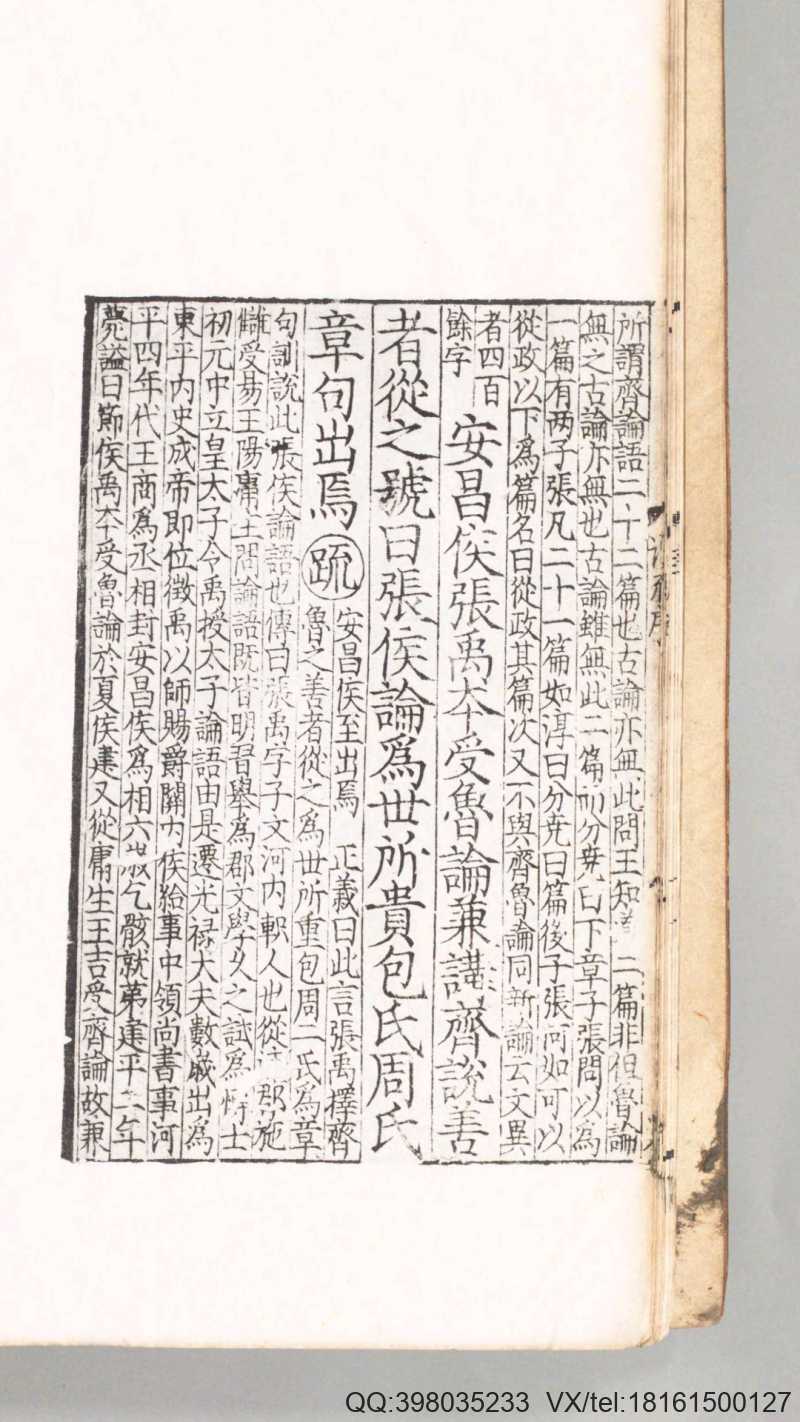 所謂齊論語二十二篇也古論亦無此問王知 二篇非但魯論
無之古論亦無也古論雖無此二篇而分堯曰下章子張問以為
一篇有两子張凡二十一篇如淳曰分堯曰篇後子張問何如可以
從政以下為篇名曰從政其篇次又不與齊魯論同新論云文異
者四百
餘字
安昌侯張禹本受魯論兼講齊說善
者從之號曰張侯論為世所貴包氏周氏
章句出焉
疏
安昌侯至出焉 正義曰此言張禹擇齊
魯之善者從之為世所重包周二氏為章
句訓說此張侯論語也傳曰張禹字子文河內軹人也從 郡施
讎受易王陽庸生問論語既皆明習舉為郡文學久之試為博士
初元中立皇太子令禹授太子論語由是遷光禄大夫數歲出為
東平內史成帝即位徵禹以師賜爵關內侯給事中領尚書事河
平四年代王商為丞相封安昌侯為相六歲乞骸就第建平二年
薨謚曰節侯禹本受魯論於夏侯建又從庸生王吉受齊論故兼
QQ:398035233 VX/tel:18161500127